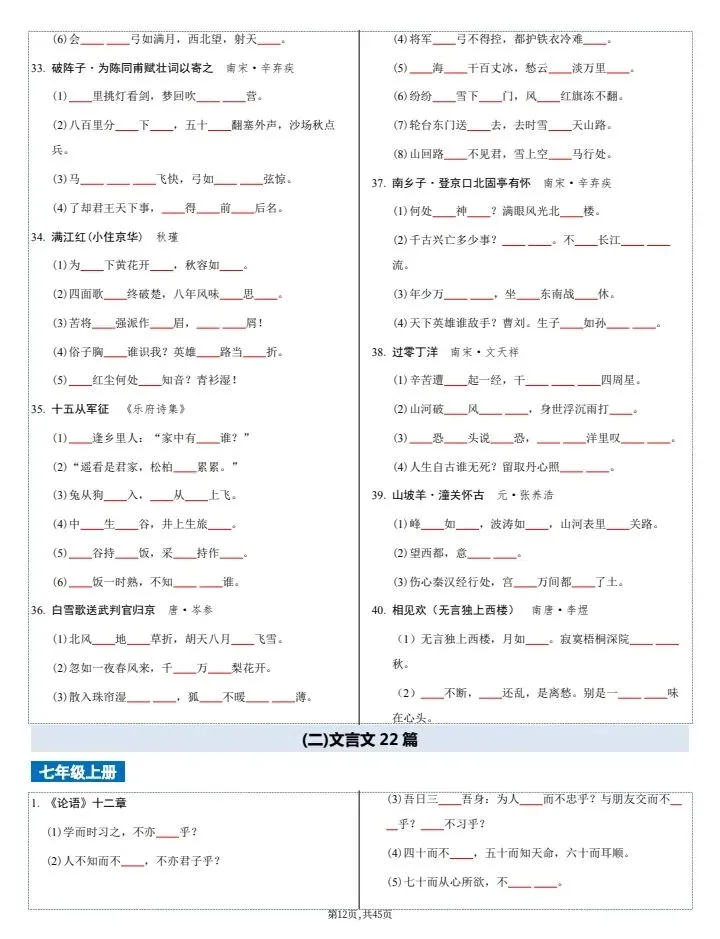 (6)会____ ____弓如满月，西北望，射天____。
33. 破阵子·为陈同甫赋壮词以寄之 南宋·辛弃疾
(1)____里挑灯看剑，梦回吹____ ____营。
(2)八百里分____下____，五十____翻塞外声，沙场秋点
兵。
(3)马____ ____ ____飞快，弓如____ ____弦惊。
(4)了却君王天下事，____得____前____后名。
34. 满江红(小住京华) 秋瑾
(1)为____下黄花开____，秋容如____。
(2)四面歌____终破楚，八年风味____思____。
(3)苦将____强派作____眉，____ ____屑！
(4)俗子胸____谁识我？英雄____路当____折。
(5)____红尘何处____知音？青衫湿！
35. 十五从军征 《乐府诗集》
(1)____逢乡里人：“家中有____谁？”
(2)“遥看是君家，松柏____累累。”
(3)兔从狗____入，____从____上飞。
(4)中____生____谷，井上生旅____。
(5)____谷持____饭，采____持作____。
(6)____饭一时熟，不知____ ____谁。
36. 白雪歌送武判官归京 唐·岑参
(1)北风____地____草折，胡天八月____飞雪。
(2)忽如一夜春风来，千____万____梨花开。
(3)散入珠帘湿____ ____，狐____不暖____ ____薄。
(4)将军____弓不得控，都护铁衣冷难____。
(5)____海____干百丈冰，愁云____淡万里____。
(6)纷纷____雪下____门，风____红旗冻不翻。
(7)轮台东门送____去，去时雪____天山路。
(8)山回路____不见君，雪上空____马行处。
37. 南乡子·登京口北固亭有怀 南宋·辛弃疾
(1)何处____神____？满眼风光北____楼。
(2)千古兴亡多少事？____ ____。不____长江____ ____
流。
(3)年少万____ ____，坐____东南战____休。
(4)天下英雄谁敌手？曹刘。生子____如孙____ ____。
38. 过零丁洋 南宋·文天祥
(1)辛苦遭____起一经，干____ ____ ____四周星。
(2)山河破____风____ ____，身世浮沉雨打____。
(3)____恐____头说____恐，____ ____洋里叹____ ____。
(4)人生自古谁无死？留取丹心照____ ____。
39. 山坡羊·潼关怀古 元·张养浩
(1)峰____如____，波涛如____，山河表里____关路。
(2)望西都，意____ ____。
(3)伤心秦汉经行处，宫____万间都____了土。
40. 相见欢（无言独上西楼） 南唐·李煜
（1）无言独上西楼，月如____。寂寞梧桐深院____ ____
秋。
（2）____不断，____还乱，是离愁。别是一____ ____味
在心头。
(二)文言文 22 篇
七年级上册
1. 《论语》十二章
(1)学而时习之，不亦____乎？
(2)人不知而不____，不亦君子乎？
(3)吾日三____吾身：为人____而不忠乎？与朋友交而不__
__乎？____不习乎？
(4)四十而不____，五十而知天命，六十而耳顺。
(5)七十而从心所欲，不____ ____。
第12页，共45页